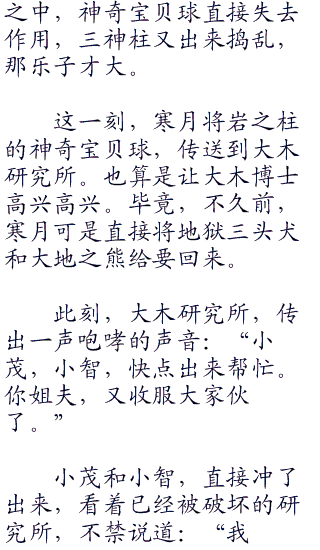 之中，神奇宝贝球直接失去
作用，三神柱又出来捣乱，
那乐子才大。
这一刻，寒月将岩之柱
的神奇宝贝球，传送到大木
研究所。也算是让大木博士
高兴高兴。毕竟，不久前，
寒月可是直接将地狱三头犬
和大地之熊给要回来。
此刻，大木研究所，传
出一声咆哮的声音：“小
茂，小智，快点出来帮忙。
你姐夫，又收服大家伙
了。”
小茂和小智，直接冲了
出来，看着已经被破坏的研
究所，不禁说道：“我